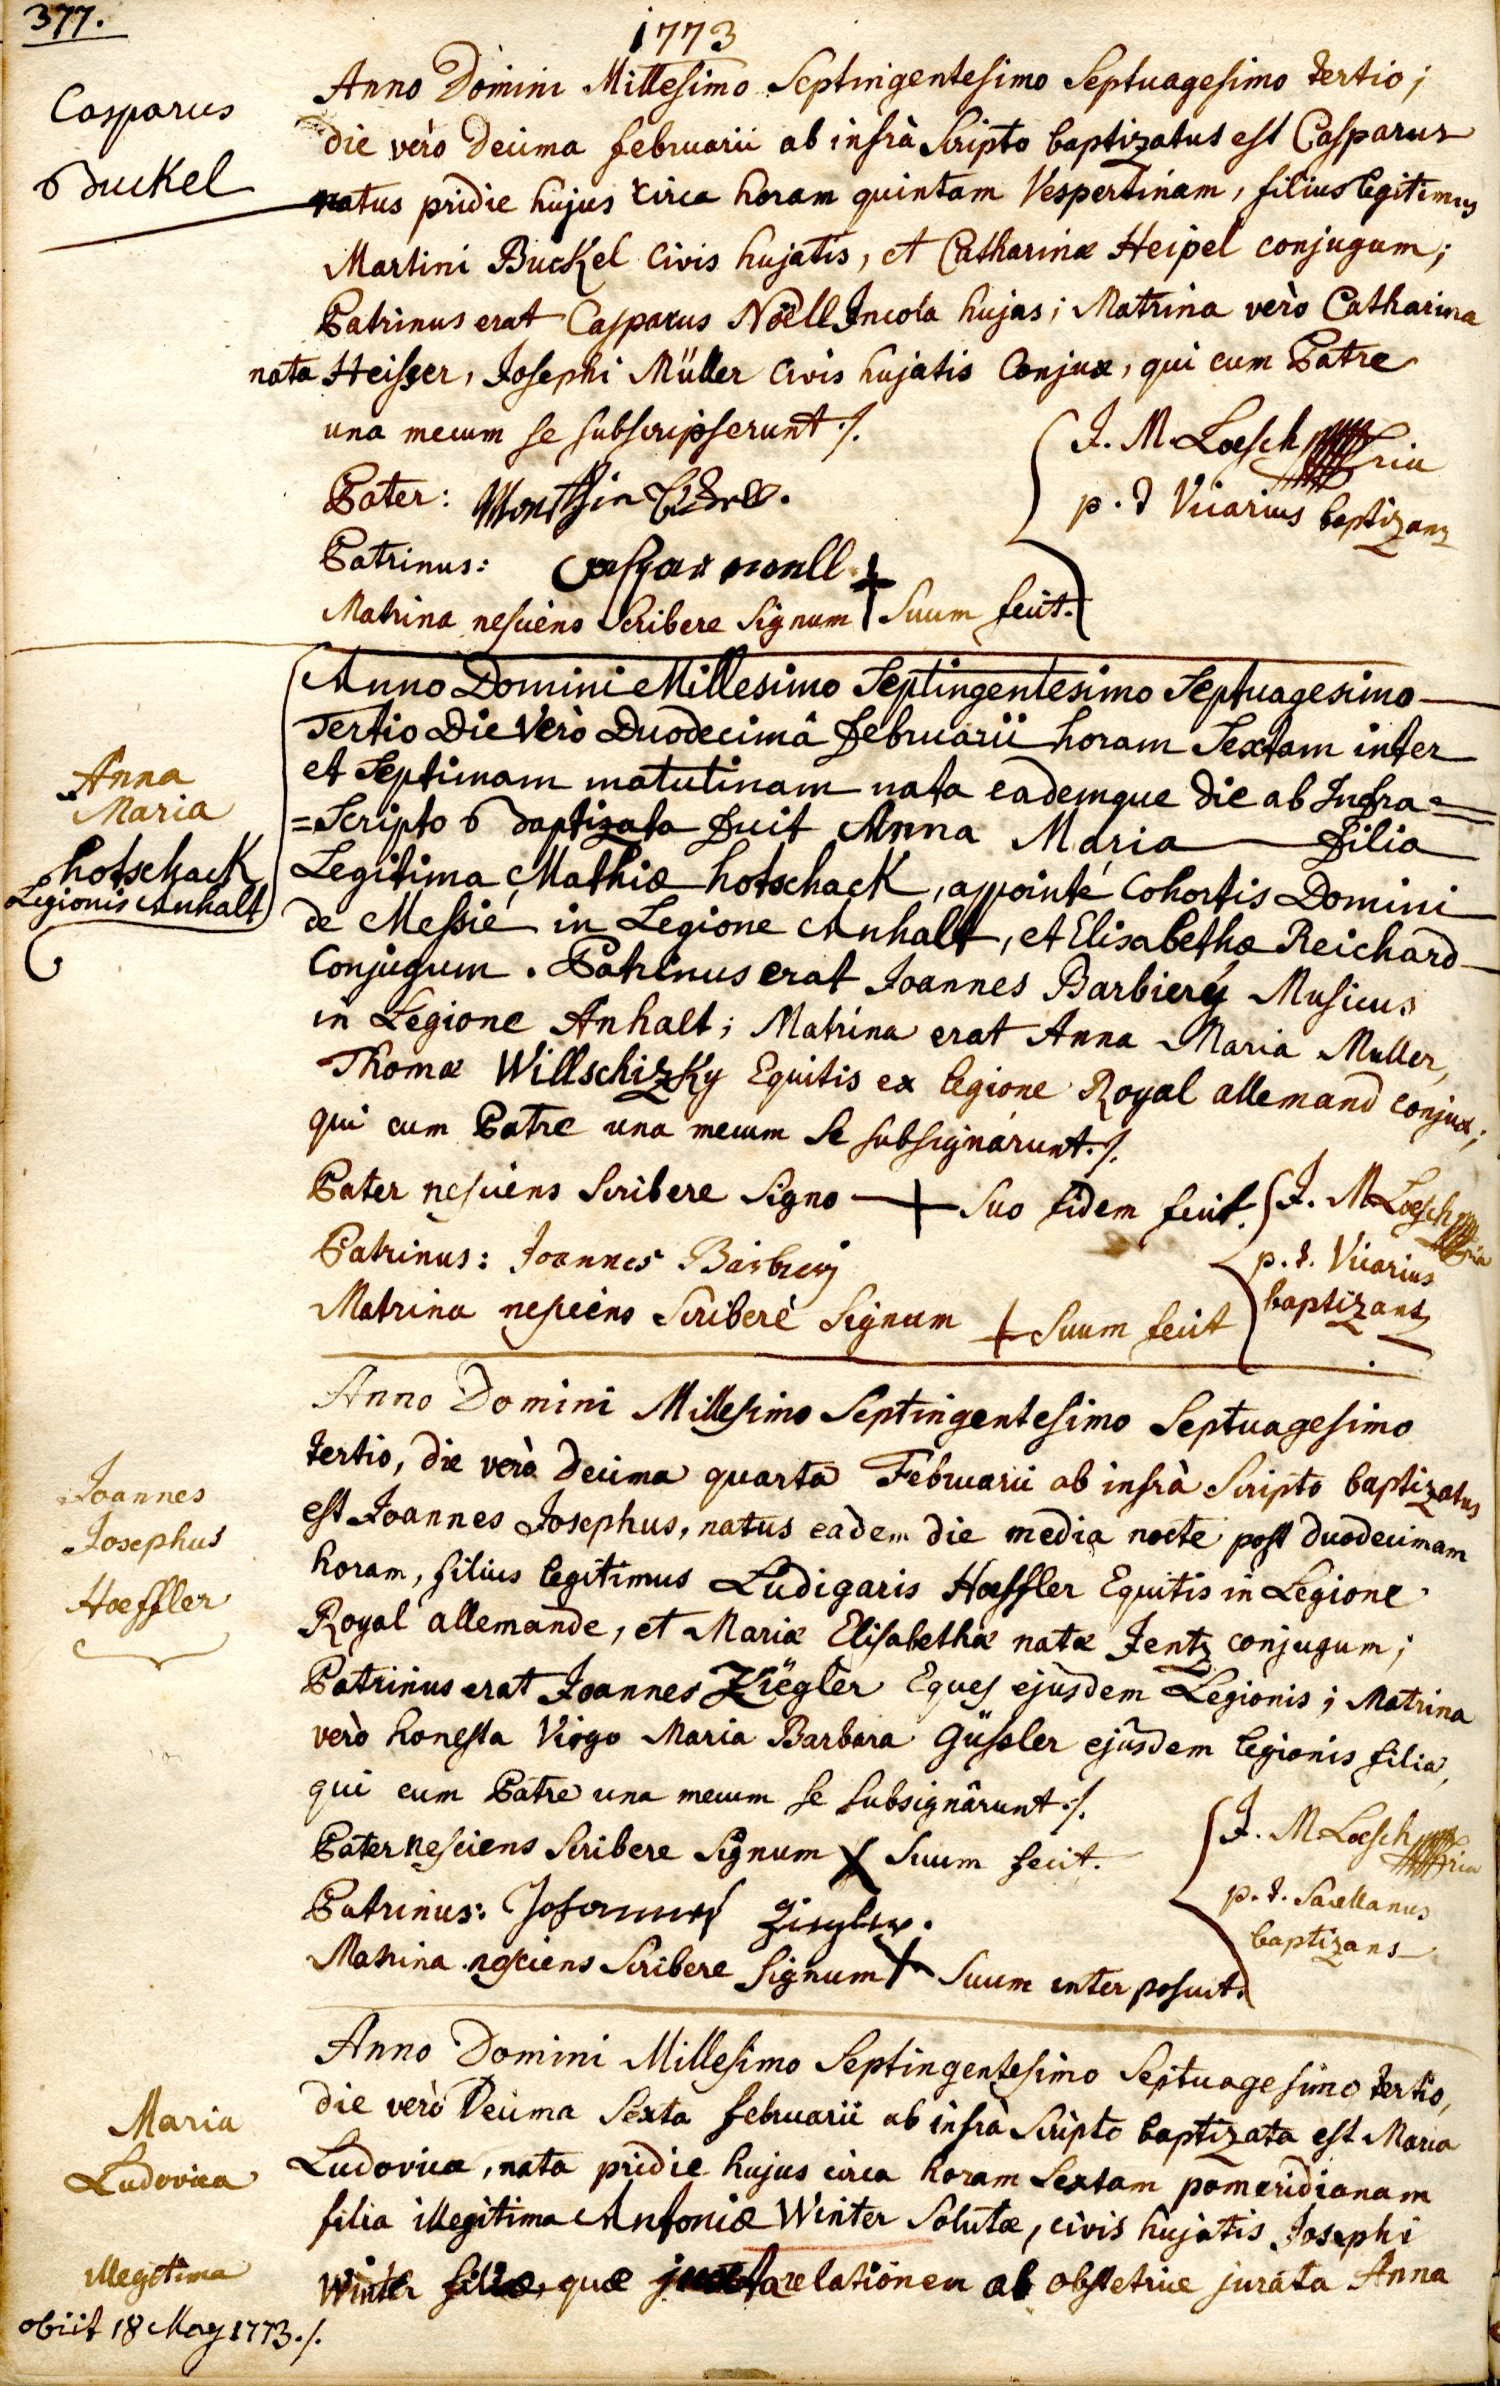 377.
1773
Casparus
Buckel
Anno Domini Millesimo Septingentesimo Septuagesimo tertio;
die verò decima februarii ab infrà Scripto baptizatus est Casparus
natus pridie hujus circa horam quintam Vespertinam, filius legitimus
Martini Buckel civis hujatis, et Catharinæ Heipel conjugum;
Patrinus erat Casparus Nöell Incola hujas; Matrina verò Catharina
nata Heisser, Josephi Müller civis hujatis Conjux, qui cum Patre
una mecum se subscripserunt ./.
Pater:
Patrinus: Caspar noell
Matrina nesciens Scribere Signum + Suum fecit.
J. M. Loesch
p. t Vicarius baptizans
Anna
Maria
hotschack
Legionis Anhalt
Anno Domini Millesimo Septingentesimo Septuagesimo
Tertio Die Verò Duodecimâ Februarii horam Sextam inter
et Septimam matutinam nata eademque die ab Infra=
=Scripto baptizata Fuit Anna Maria Filia
Legitima Mathiæ hotschack, appointé Cohortis Domini
de Messié in Legione Anhalt, et Elisabethæ Reichard
Conjugum. Patrinus erat Joannes Barbierÿ Musicus
in Legione Anhalt; Matrina erat Anna Maria Muller,
Thomæ Willschizky Equitis ex legione Royal allemand conjux;
qui cum Patre una mecum se subsignarunt ./.
Pater nesciens Scribere Signo + Suo fidem fecit.
Patrinus: Joannes Barbierij
Matrina nesciens Scribere Signum + Suum fecit
J. M. Loesch
p. t. Vicarius
baptizans
Joannes
Josephus
Hoeffler
Anno Domini Millesimo Septingentesimo Septuagesimo
tertio, die verò decima quarta Februarii ab infrà Scripto baptizatus
est Joannes Josephus, natus eadem die media nocte post duodecimam
horam, filius legitimus Ludigaris Hoeffler Equitis in Legione
Royal allemande, et Mariæ Elisabethæ natæ Jentz conjugum;
Patrinus erat Joannes Ziegler Eques ejusdem Legionis; Matrina
verò honesta Virgo Maria Barbara Güssler ejusdem legionis filia,
qui cum Patre una mecum se subsignârunt ./.
Pater nesciens Scribere Signum X Suum fecit.
Patrinus: Johannes Ziegler.
Matrina nesciens Scribere Signum + Suum interposuit.
J. M. Loesch
p. t. Sacellanus
baptizans
Maria
Ludovica
illegitima
obiit 18 May 1773 ./.
Anno Domini Millesimo Septingentesimo Septuagesimo tertio,
die verò Decima Sexta februarii ab infrà Scripto baptizata est Maria
Ludovica, nata pridie hujus circa horam Sextam pomeridianam
filia illegitima Antoniæ Winter Solutæ, civis hujatis Josephi
Winter filiæ, quæ juxta relationem ab obstetrice jurata Anna